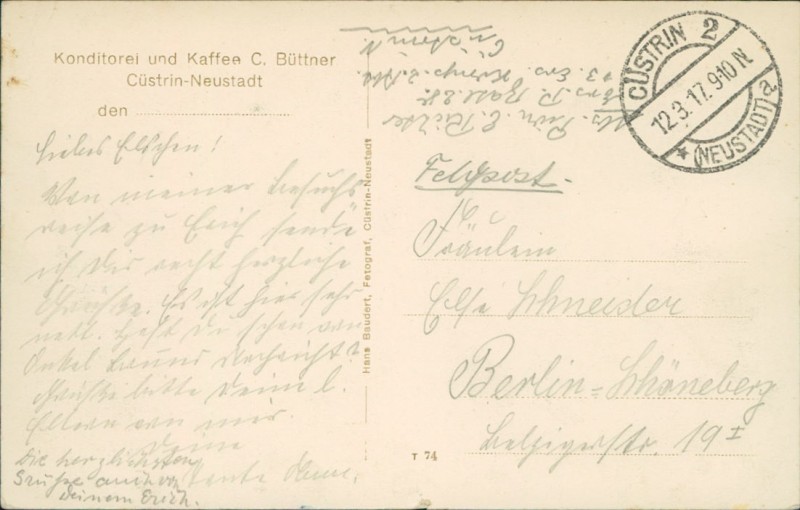 Konditorei und Kaffee C. Büttner
Cüstrin-Neustadt
den
Liebes Elschen!
Von meiner Besuchs
reise zu Erich sende
ich Dir recht herzliche
Grüße. Es ist hier sehr
nett. Hast Du schon von
Onkel Nachricht?
Grüße bitte Deine l.
Eltern von mir.
Deine
Tante
Die herzlichsten
Grüße auch von
Deinem Erich.
Hans Baudert, Fotograf, Cüstrin-Neustadt
CÜSTRIN 2
12.3.17. 9-10 N
* (NEUSTADT) a
Feldpost.
Fräulein
Else Schneider
Berlin-Schöneberg
Belzigerstr. 19 I
T 74